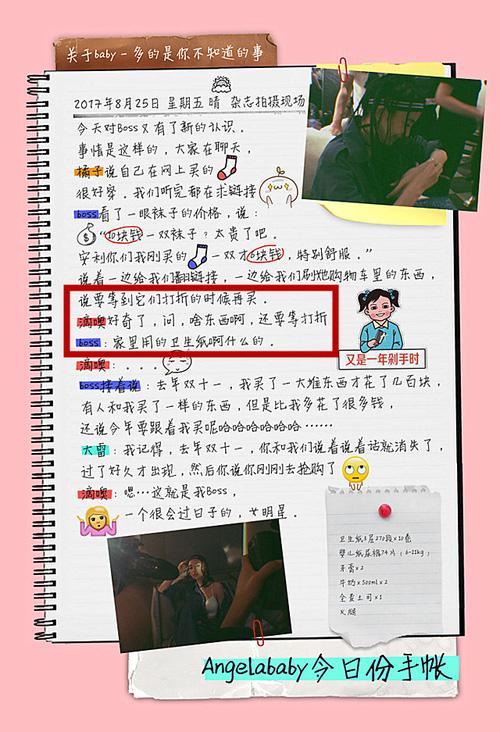 关于baby-多的是你不知道的事
2017年8月25日 星期五 晴 杂志拍摄现场
今天对Boss又有了新的认识.
事情是这样的，大家在聊天，
橘子说自己在网上买的
很好穿.我们听完都在求链接
boss看了一眼袜子的价格，说：
$
“10块钱一双袜子？太贵了吧.
安利你们我刚买的 一双才10块钱，特别舒服.”
说着一边给我们翻链接，一边给我们刷她购物车里的东西，
说要等到它们打折的时候再买.
滴噢好奇了，问，啥东西啊，还要等打折
boss：家里用的卫生纸啊什么的.
又是一年剁手时
滴噢：....
boss接着说：去年双十一，我买了一大堆东西才花了几百块，
有人和我买了一样的东西，但是比我多花了很多钱，
还说今年要跟着我买呢哈哈哈哈哈哈哈
大雷：我记得，去年双十一，你和我们说着说着话就消失了，
过了好久才出现，然后你说你刚刚去抢购了
滴噢：嗯…这就是我Boss，
一个很会过日子的，女明星.
卫生纸3层270段×20卷
婴儿纸尿裤74片（6-11kg）
牙膏×2
牛奶×500ml×2
全麦土司×1
火腿
Angelababy今日份手帐